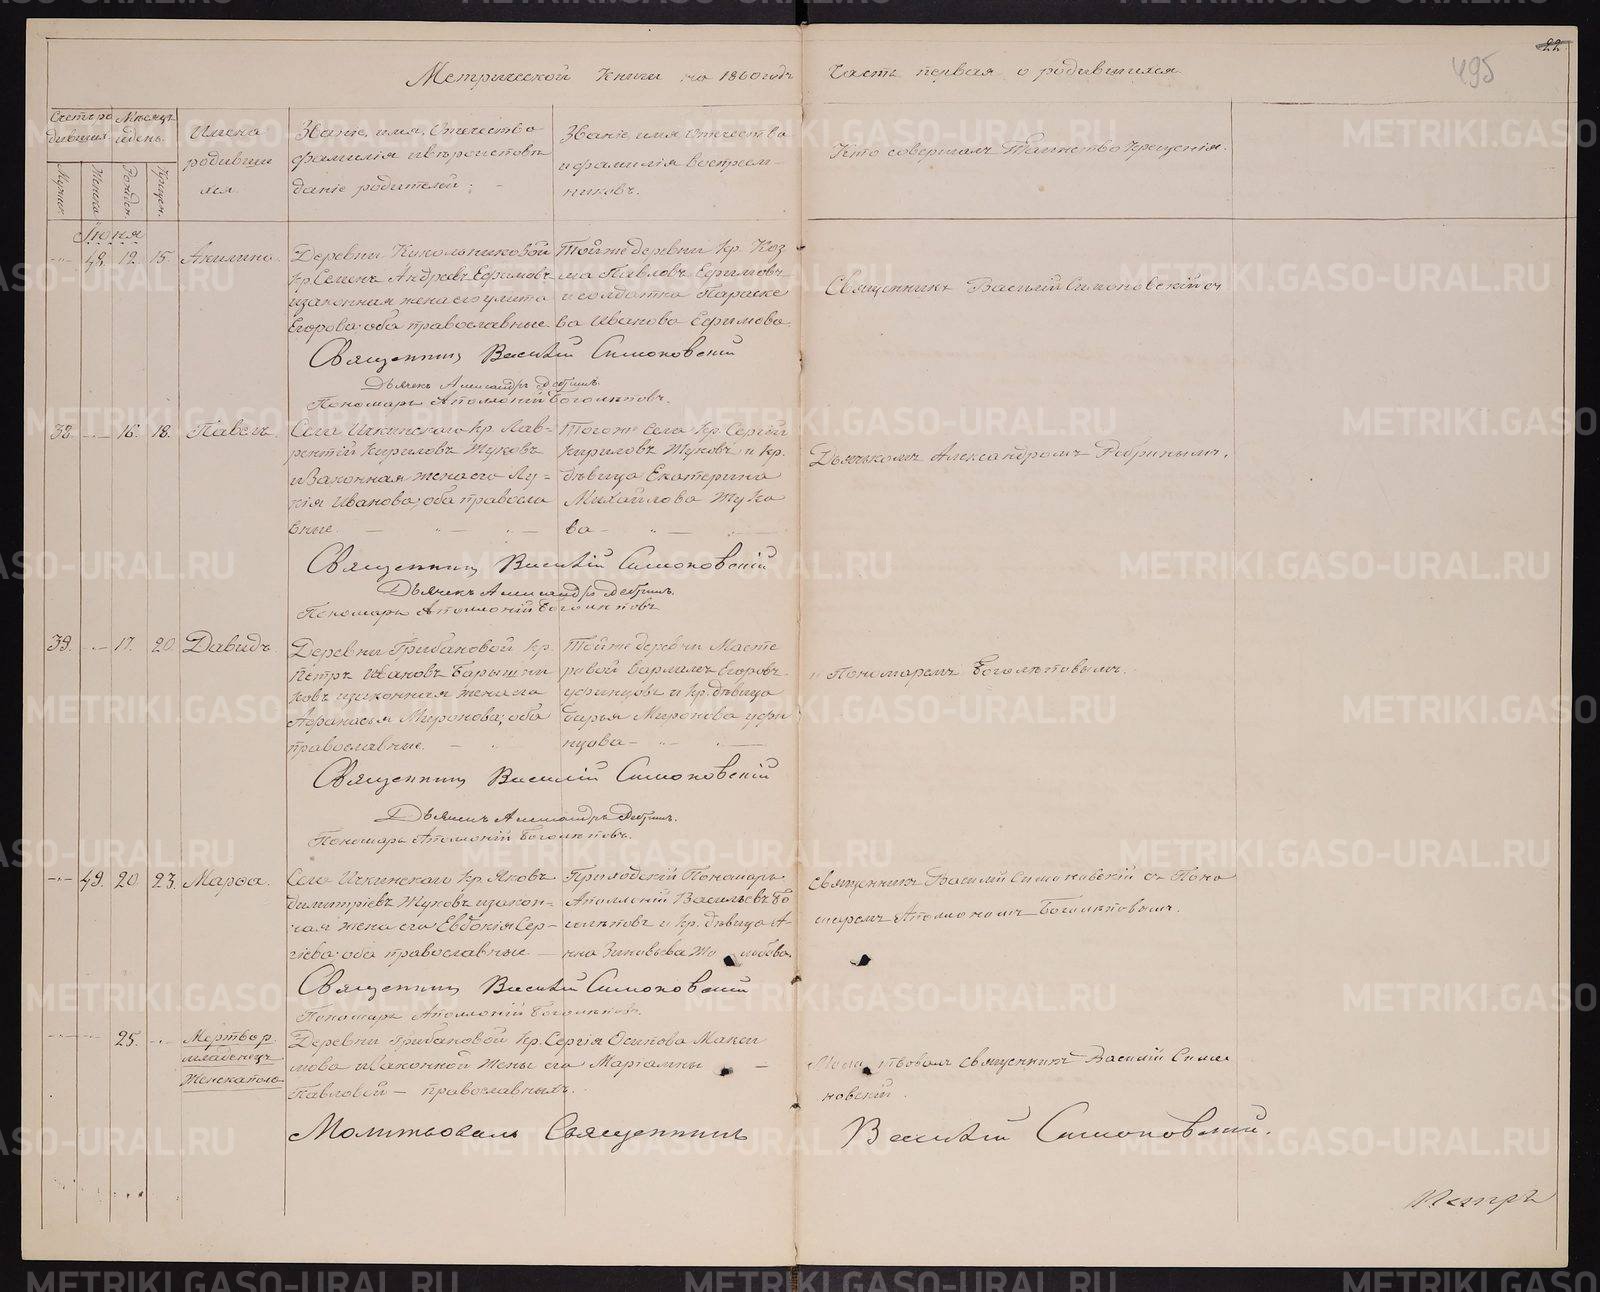 Метрической Книги на 1860 годъ
Часть первая о родившихся.
22
495
Счетъ ро
дившихся.
Мѣсяцъ
и день.
Имена
родивши
хся
Званіе, имя, Отчество
фамилія и вѣроисповѣ
даніе родителей:
Званіе имя отчество
и фамилія воспрем-
никовъ.
Кто совершалъ Таинство Крещенія.
Мужес.
Женска.
Рожден.
Крещен.
Іюня
48. 12. 15. Акилина.
Деревни Никольниковой
Кр. Семенъ Андреевъ Ефимовъ
и законная жена его Улита
Егорова оба православные.
Тойже деревни Кр. Коз
ма Павловъ Ефимовъ
и солдатка Параске
ва Иванова Ефимова.
Священникъ Василій Симоновскій съ
Священникъ Василій Симоновскій
Дьячекъ Александръ
Пономарь Аполлоній Боголѣповъ.
38. 16. 18. Павелъ.
Села Ичкинскаго Кр. Лав-
рентій Кириловъ Жуковъ
и Законная жена его Лу-
кія Иванова, оба правосла
вные
Тогоже Села Кр. Сергій
Кириловъ Жуковъ и Кр.
дѣвица Екатерина
Михайлова Жуко
ва
Дьячькомъ Александромъ
Священникъ Василій Симоновскій
Дьячекъ Александръ
Пономарь Аполлоній Боголѣповъ
39. 17. 20. Давидъ.
Деревни Грибановой Кр.
Петръ Ивановъ Барышни
ковъ и законная жена его
Афанасья Миронова; оба
православные.
Тойже деревни Масте
ровой Варламъ Егоровъ
Уфинцовъ и Кр. дѣвица
Дарья Миронова Уфи
нцова
и Пономаремъ Боголѣповымъ.
Священникъ Василій Симоновскій
Дьячекъ Александръ
Пономарь Аполлоній Боголѣповъ.
49. 20. 23. Марфа.
Села Ичкинскаго Кр. Яковъ
Димитріевъ Жуковъ и закон-
ная жена его Евдокія Сер-
гіева оба православные
Приходскій Пономарь
Аполлоній Васильевъ Бо
голѣповъ и Кр. дѣвица А-
нна Зиновьева
Священникъ Василій Симоновскій съ Поно
маремъ Аполлоніемъ Боголѣповымъ.
Священникъ Василій Симоновскій
Пономарь Аполлоній Боголѣповъ.
25. Мертвор.
младенецъ
Женска пола
Деревни Грибановой Кр. Сергія Осипова Макси
мова и законной жены его Маріамны
Павловой православныхъ.
Священникъ Василій Симо
новскій.
Молитвовалъ Священникъ Василій Симоновскій.
Петръ
METRIKI.GASO-URAL.RU